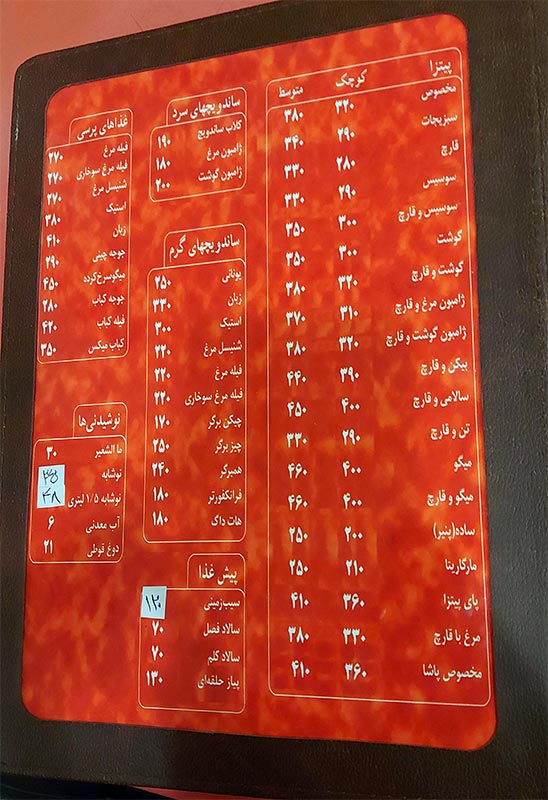 پیتزا کوچک متوسط
مخصوص ۳۲۰ ۳۸۰
سبزیجات ۲۹۰ ۳۴۰
قارچ ۲۸۰ ۳۳۰
سوسیس ۲۹۰ ۳۳۰
سوسیس و قارچ ۳۰۰ ۳۵۰
گوشت ۳۰۰ ۳۵۰
گوشت و قارچ ۳۲۰ ۳۸۰
ژامبون مرغ و قارچ ۳۱۰ ۳۷۰
ژامبون گوشت و قارچ ۳۲۰ ۳۸۰
بیکن و قارچ ۳۹۰ ۴۴۰
سالامی و قارچ ۴۰۰ ۴۵۰
تن و قارچ ۲۹۰ ۳۳۰
میگو ۴۰۰ ۴۶۰
میگو و قارچ ۴۰۰ ۴۶۰
ساده(پنیر) ۲۰۰ ۲۵۰
مارگاریتا ۲۱۰ ۲۵۰
پای پیتزا ۳۶۰ ۴۱۰
مرغ با قارچ ۳۳۰ ۳۸۰
مخصوص پاشا ۳۶۰ ۴۱۰
ساندویچهای سرد
کلاب ساندویچ ۱۹۰
ژامبون مرغ ۱۸۰
ژامبون گوشت ۲۰۰
ساندویچهای گرم
یونانی ۲۵۰
زبان ۳۳۰
استیک ۳۰۰
شنیسل مرغ ۲۲۰
فیله مرغ ۲۲۰
فیله مرغ سوخاری ۲۲۰
چیکن برگر ۱۷۰
چیز برگر ۲۵۰
همبرگر ۲۴۰
فرانکفورتر ۱۸۰
هات داگ ۱۸۰
پیش غذا
سیب‌زمینی ۱۲۰
سالاد فصل ۷۰
سالاد کلم ۷۰
پیاز حلقه‌ای ۱۳۰
غذاهای پرسی
فیله مرغ ۲۷۰
فیله مرغ سوخاری ۲۷۰
شنیسل مرغ ۲۷۰
استیک ۳۸۰
زبان ۴۱۰
جوجه چینی ۲۹۰
میگوسرخ‌کرده ۴۵۰
جوجه کباب ۲۸۰
فیله کباب ۴۲۰
کباب میکس ۳۵۰
نوشیدنی‌ها
ما الشعیر ۳۰
نوشابه
نوشابه ۱/۵ لیتری ۴۸
آب معدنی ۶
دوغ قوطی ۲۱